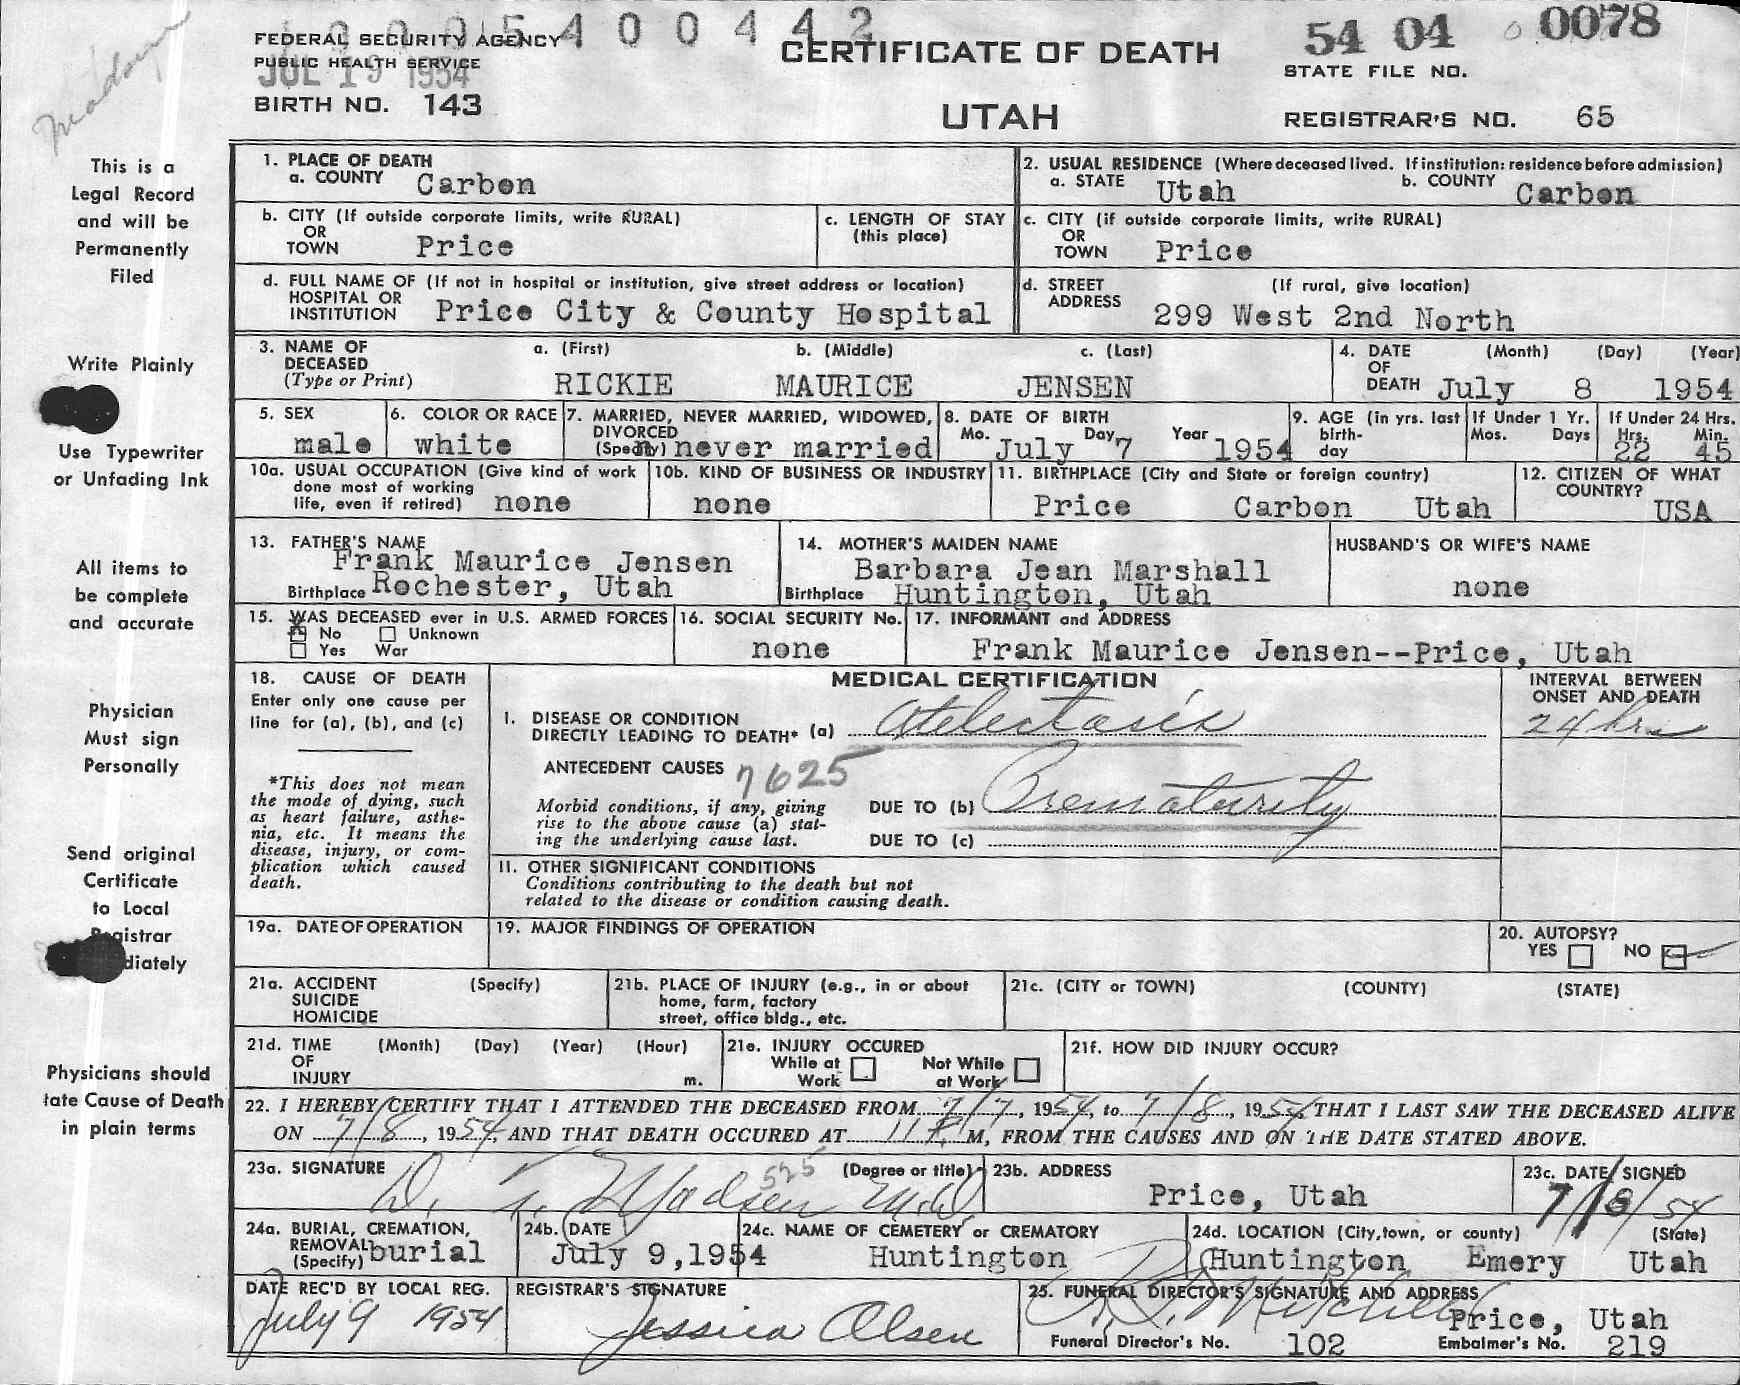 Madsen
FEDERAL SECURITY AGENCY 400442
PUBLIC HEALTH SERVICE
JUL 19 1954
BIRTH NO. 143
CERTIFICATE OF DEATH
UTAH
54 04 0078
STATE FILE NO.
REGISTRAR'S NO. 65
This is a
Legal Record
and will be
Permanently
Filed
Write Plainly
Use Typewriter
or Unfading Ink
All items to
be complete
and accurate
Physician
Must sign
Personally
Send original
Certificate
to Local
gistrar
diately
Physicians should
tate Cause of Death
in plain terms
1. PLACE OF DEATH
a. COUNTY Carbon
2. USUAL RESIDENCE (Where deceased lived. If institution: residence before admission)
a. STATE Utah b. COUNTY Carbon
b. CITY (If outside corporate limits, write RURAL)
OR
TOWN Price
c. LENGTH OF STAY
(this place)
c. CITY (if outside corporate limits, write RURAL)
OR
TOWN Price
d. FULL NAME OF (If not in hospital or institution, give street address or location)
HOSPITAL OR
INSTITUTION Price City & County Hospital
d. STREET (If rural, give location)
ADDRESS 299 West 2nd North
3. NAME OF a. (First) b. (Middle) c. (Last)
DECEASED
(Type or Print) RICKIE MAURICE JENSEN
4. DATE (Month) (Day) (Year)
OF
DEATH July 8 1954
5. SEX
male
6. COLOR OR RACE
white
7. MARRIED, NEVER MARRIED, WIDOWED,
DIVORCED
(Specify) never married
8. DATE OF BIRTH
Mo. Day Year
July 7 1954
9. AGE (in yrs. last
birth-
day
If Under 1 Yr.
Mos. Days
If Under 24 Hrs.
Hrs. Min.
22 45
10a. USUAL OCCUPATION (Give kind of work
done most of working
life, even if retired) none
10b. KIND OF BUSINESS OR INDUSTRY
none
11. BIRTHPLACE (City and State or foreign country)
Price Carbon Utah
12. CITIZEN OF WHAT
COUNTRY?
USA
13. FATHER'S NAME
Frank Maurice Jensen
Birthplace Rochester, Utah
14. MOTHER'S MAIDEN NAME
Barbara Jean Marshall
Birthplace Huntington, Utah
HUSBAND'S OR WIFE'S NAME
none
15. WAS DECEASED ever in U.S. ARMED FORCES
X No Unknown
Yes War
16. SOCIAL SECURITY No.
none
17. INFORMANT and ADDRESS
Frank Maurice Jensen--Price, Utah
18. CAUSE OF DEATH
Enter only one cause per
line for (a), (b), and (c)
*This does not mean
the mode of dying, such
as heart failure, asthe-
nia, etc. It means the
disease, injury, or com-
plication which caused
death.
MEDICAL CERTIFICATION
INTERVAL BETWEEN
ONSET AND DEATH
I. DISEASE OR CONDITION
DIRECTLY LEADING TO DEATH* (a) Atelectasis 24 hrs
ANTECEDENT CAUSES 7625
Morbid conditions, if any, giving
rise to the above cause (a) stat-
ing the underlying cause last.
DUE TO (b) Prematurity
DUE TO (c)
II. OTHER SIGNIFICANT CONDITIONS
Conditions contributing to the death but not
related to the disease or condition causing death.
19a. DATE OF OPERATION
19. MAJOR FINDINGS OF OPERATION
20. AUTOPSY?
YES NO
21a. ACCIDENT (Specify)
SUICIDE
HOMICIDE
21b. PLACE OF INJURY (e.g., in or about
home, farm, factory
street, office bldg., etc.
21c. (CITY or TOWN) (COUNTY) (STATE)
21d. TIME (Month) (Day) (Year) (Hour)
OF
INJURY m.
21e. INJURY OCCURED
While at Work Not While at Work
21f. HOW DID INJURY OCCUR?
22. I HEREBY CERTIFY THAT I ATTENDED THE DECEASED FROM 7/7, 1954, to 7/8, 1954 THAT I LAST SAW THE DECEASED ALIVE
ON 7/8, 1954, AND THAT DEATH OCCURED AT 11 P. M, FROM THE CAUSES AND ON THE DATE STATED ABOVE.
23a. SIGNATURE (Degree or title)
Madsen M.D. 525
23b. ADDRESS
Price, Utah
23c. DATE SIGNED
7/8/54
24a. BURIAL, CREMATION,
REMOVAL
(Specify) burial
24b. DATE
July 9,1954
24c. NAME OF CEMETERY or CREMATORY
Huntington
24d. LOCATION (City, town, or county) (State)
Huntington Emery Utah
DATE REC'D BY LOCAL REG.
July 9 1954
REGISTRAR'S SIGNATURE
Jessica Olsen
25. FUNERAL DIRECTOR'S SIGNATURE AND ADDRESS
Mitchell Price, Utah
Funeral Director's No. 102 Embalmer's No. 219